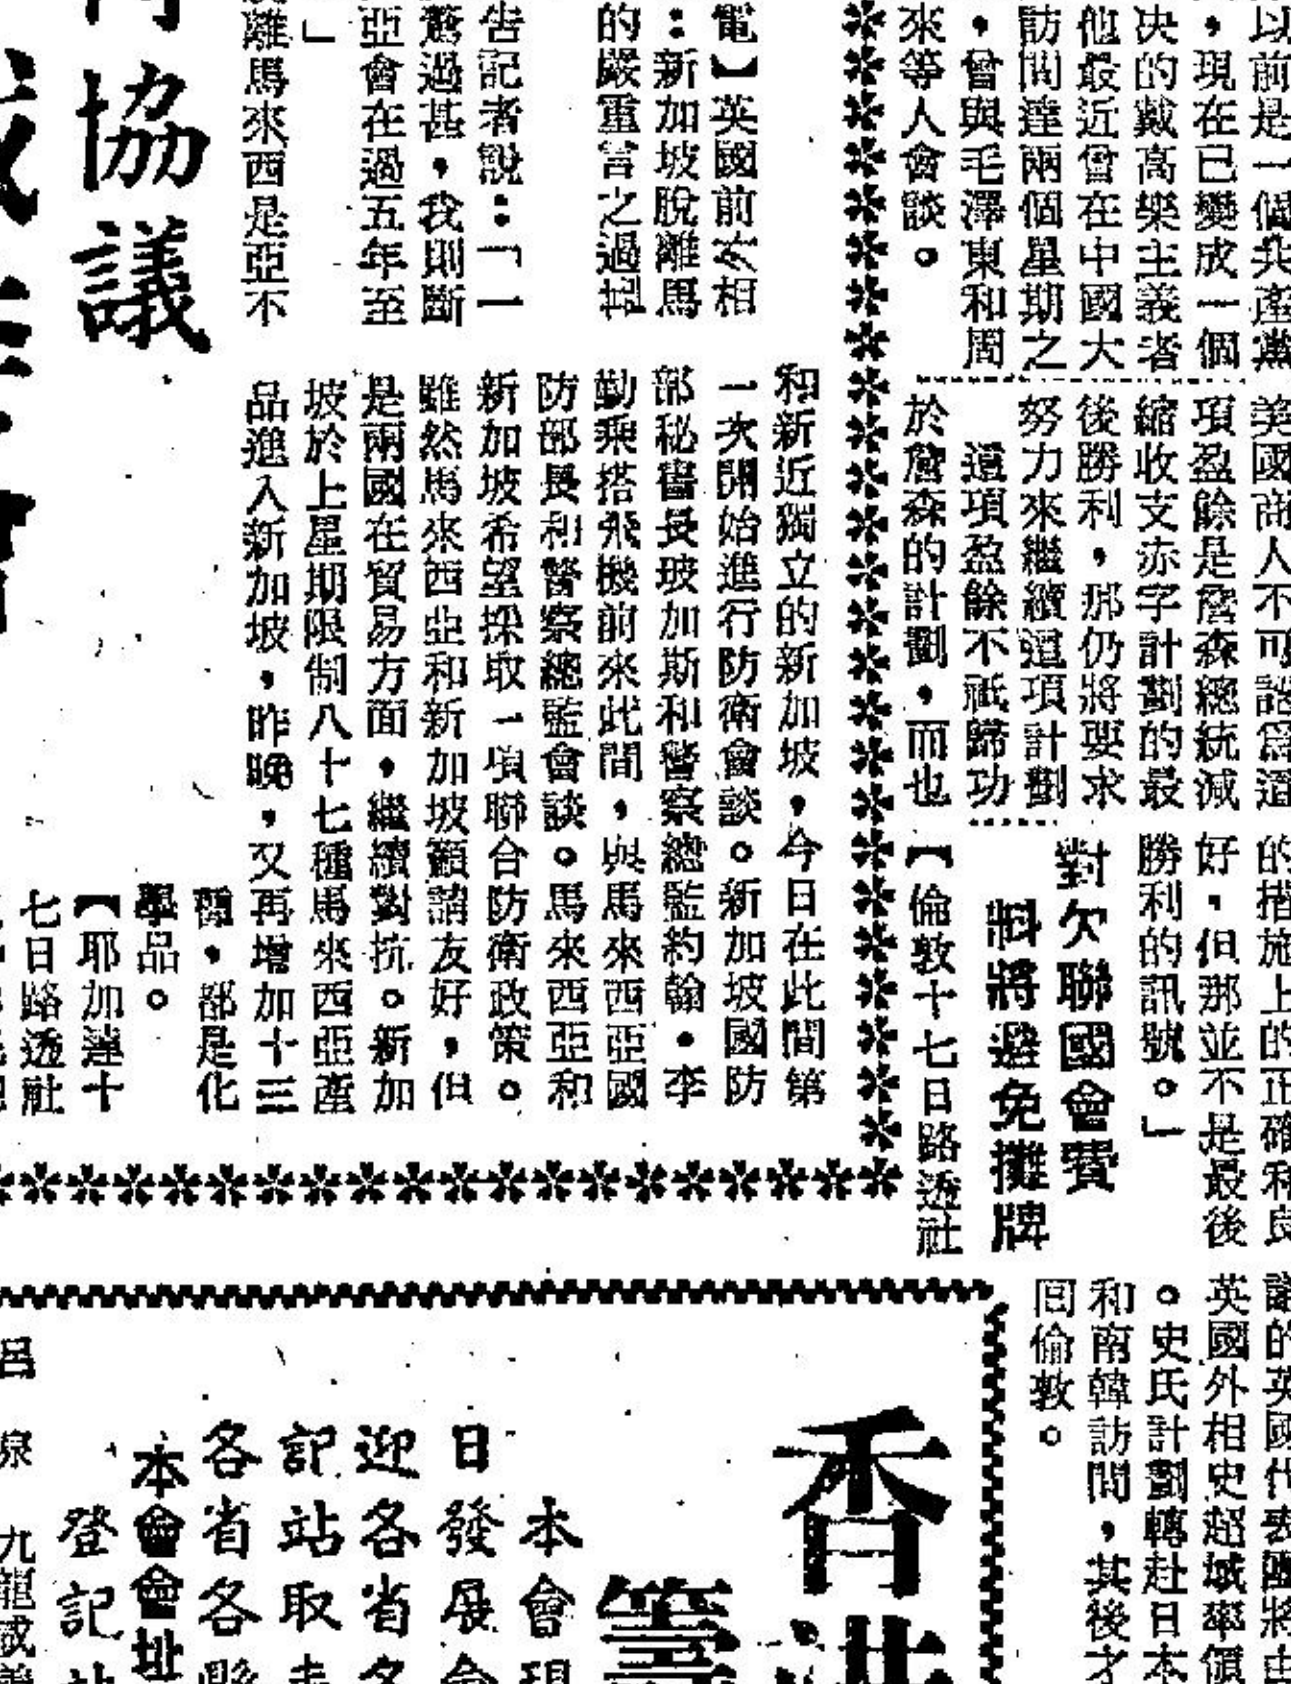 以前是一個共產黨
，現在已變成一個
決的戴高樂主義者
他最近曾在中國大
訪問達兩個星期之
，曾與毛澤東和周
來等人會談。
美國商人不可認爲這
項盈餘是詹森總統減
縮收支赤字計劃的最
後勝利，那仍將要求
努力來繼續這項計劃
這項盈餘不祇歸功
於詹森的計劃，而也
的措施上的正確和良
好，但那並不是最後
勝利的訊號。」
對欠聯國會費
料將避免攤牌
【倫敦十七日路透社
的英國代表團將由
英國外相史超域率領
。史氏計劃轉赴日本
和南韓訪問，其後才
囘倫敦。
電】英國前次相
：新加坡脫離馬
的嚴重言之過
告記者說：「一
驚過甚，我則斷
亞會在過五年至
」
離馬來西是亞不
和新近獨立的新加坡，今日在此間第
一次開始進行防衛會談。新加坡國防
部秘書長玻加斯和警察總監約翰・李
勤乘搭飛機前來此間，與馬來西亞國
防部長和警察總監會談。馬來西亞和
新加坡希望採取一項聯合防衛政策。
雖然馬來西亞和新加坡籲請友好，但
是兩國在貿易方面，繼續對抗。新加
坡於上星期限制八十七種馬來西亞產
品進入新加坡，昨晚，又再增加十三
種，都是化
學品。
【耶加達十
七日路透社
協議
香港
籌
本會現
日發展會
迎各省各
記站取表
各省各縣
本會會址
登記
呂
泉
九龍城